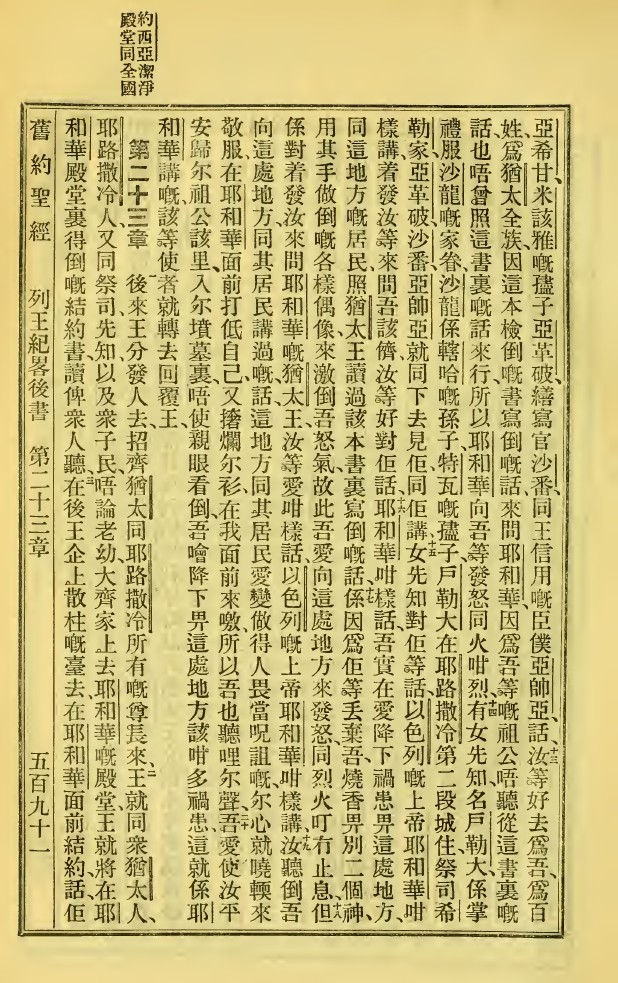 約西亞潔淨
殿堂同全國
亞希甘、米該雅嘅孻子亞革破、繕寫官沙番、同王信用嘅臣僕亞帥亞、話、十三汝等好去爲吾、爲百
姓、爲猶太全族、因這本檢倒嘅書寫倒嘅話、來問耶和華、因爲吾等嘅祖公唔聽從這書裏嘅
話、也唔曾照這書裏嘅話來行、所以耶和華向吾等發怒、同火咁烈、十四有女先知名戶勒大、係掌
禮服沙龍嘅家眷、沙龍係轄哈嘅孫子、特瓦嘅孻子、戶勒大在耶路撒冷第二段城住、祭司希
勒家、亞革破、沙番、亞帥亞、就同下去見佢、同佢講、十五女先知對佢等話、以色列嘅上帝耶和華咁
樣講着、發汝等來問吾該儕、汝等好對佢話、十六耶和華咁樣話、吾實在愛降下禍患畀這處地方、
同這地方嘅居民、照猶太王讀過該本書裏寫倒嘅話、十七係因爲佢等丟棄吾、燒香畀別二個神、
用其手做倒嘅各樣偶像、來激倒吾怒氣、故此吾愛向這處地方來發怒、同烈火叮冇止息、十八但
係對着發汝來問耶和華嘅猶太王、汝等愛咁樣話、以色列嘅上帝耶和華咁樣講、汝聽倒吾
向這處地方、同其居民講過嘅話、十九這地方同其居民愛變做得人畏、當呪詛嘅、尔心就曉輭來
敬服、在耶和華面前打低自己、又撦爛尔衫、在我面前來噭、所以吾也聽哩尔聲、二十吾愛使汝平
安歸尔祖公該里、入尔墳墓裏、唔使親眼看倒吾噲降下畀這處地方該咁多禍患、這就係耶
和華講嘅、該等使者就轉去回覆王、
第二十三章　一後來王分發人去、招齊猶太同耶路撒冷所有嘅尊長來、二王就同衆猶太人、
耶路撒冷人、又同祭司先知、以及衆子民、唔論老幼大齊家上去耶和華嘅殿堂、王就將在耶
和華殿堂裏得倒嘅結約書、讀俾衆人聽、三在後王企上散柱嘅臺去、在耶和華面前結約話、佢
舊約聖經　列王紀畧後書　第二十三章　五百九十一